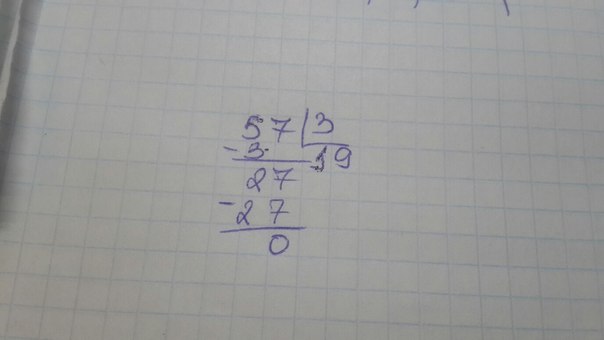 57 | 3
- 3 19
27
- 27
0